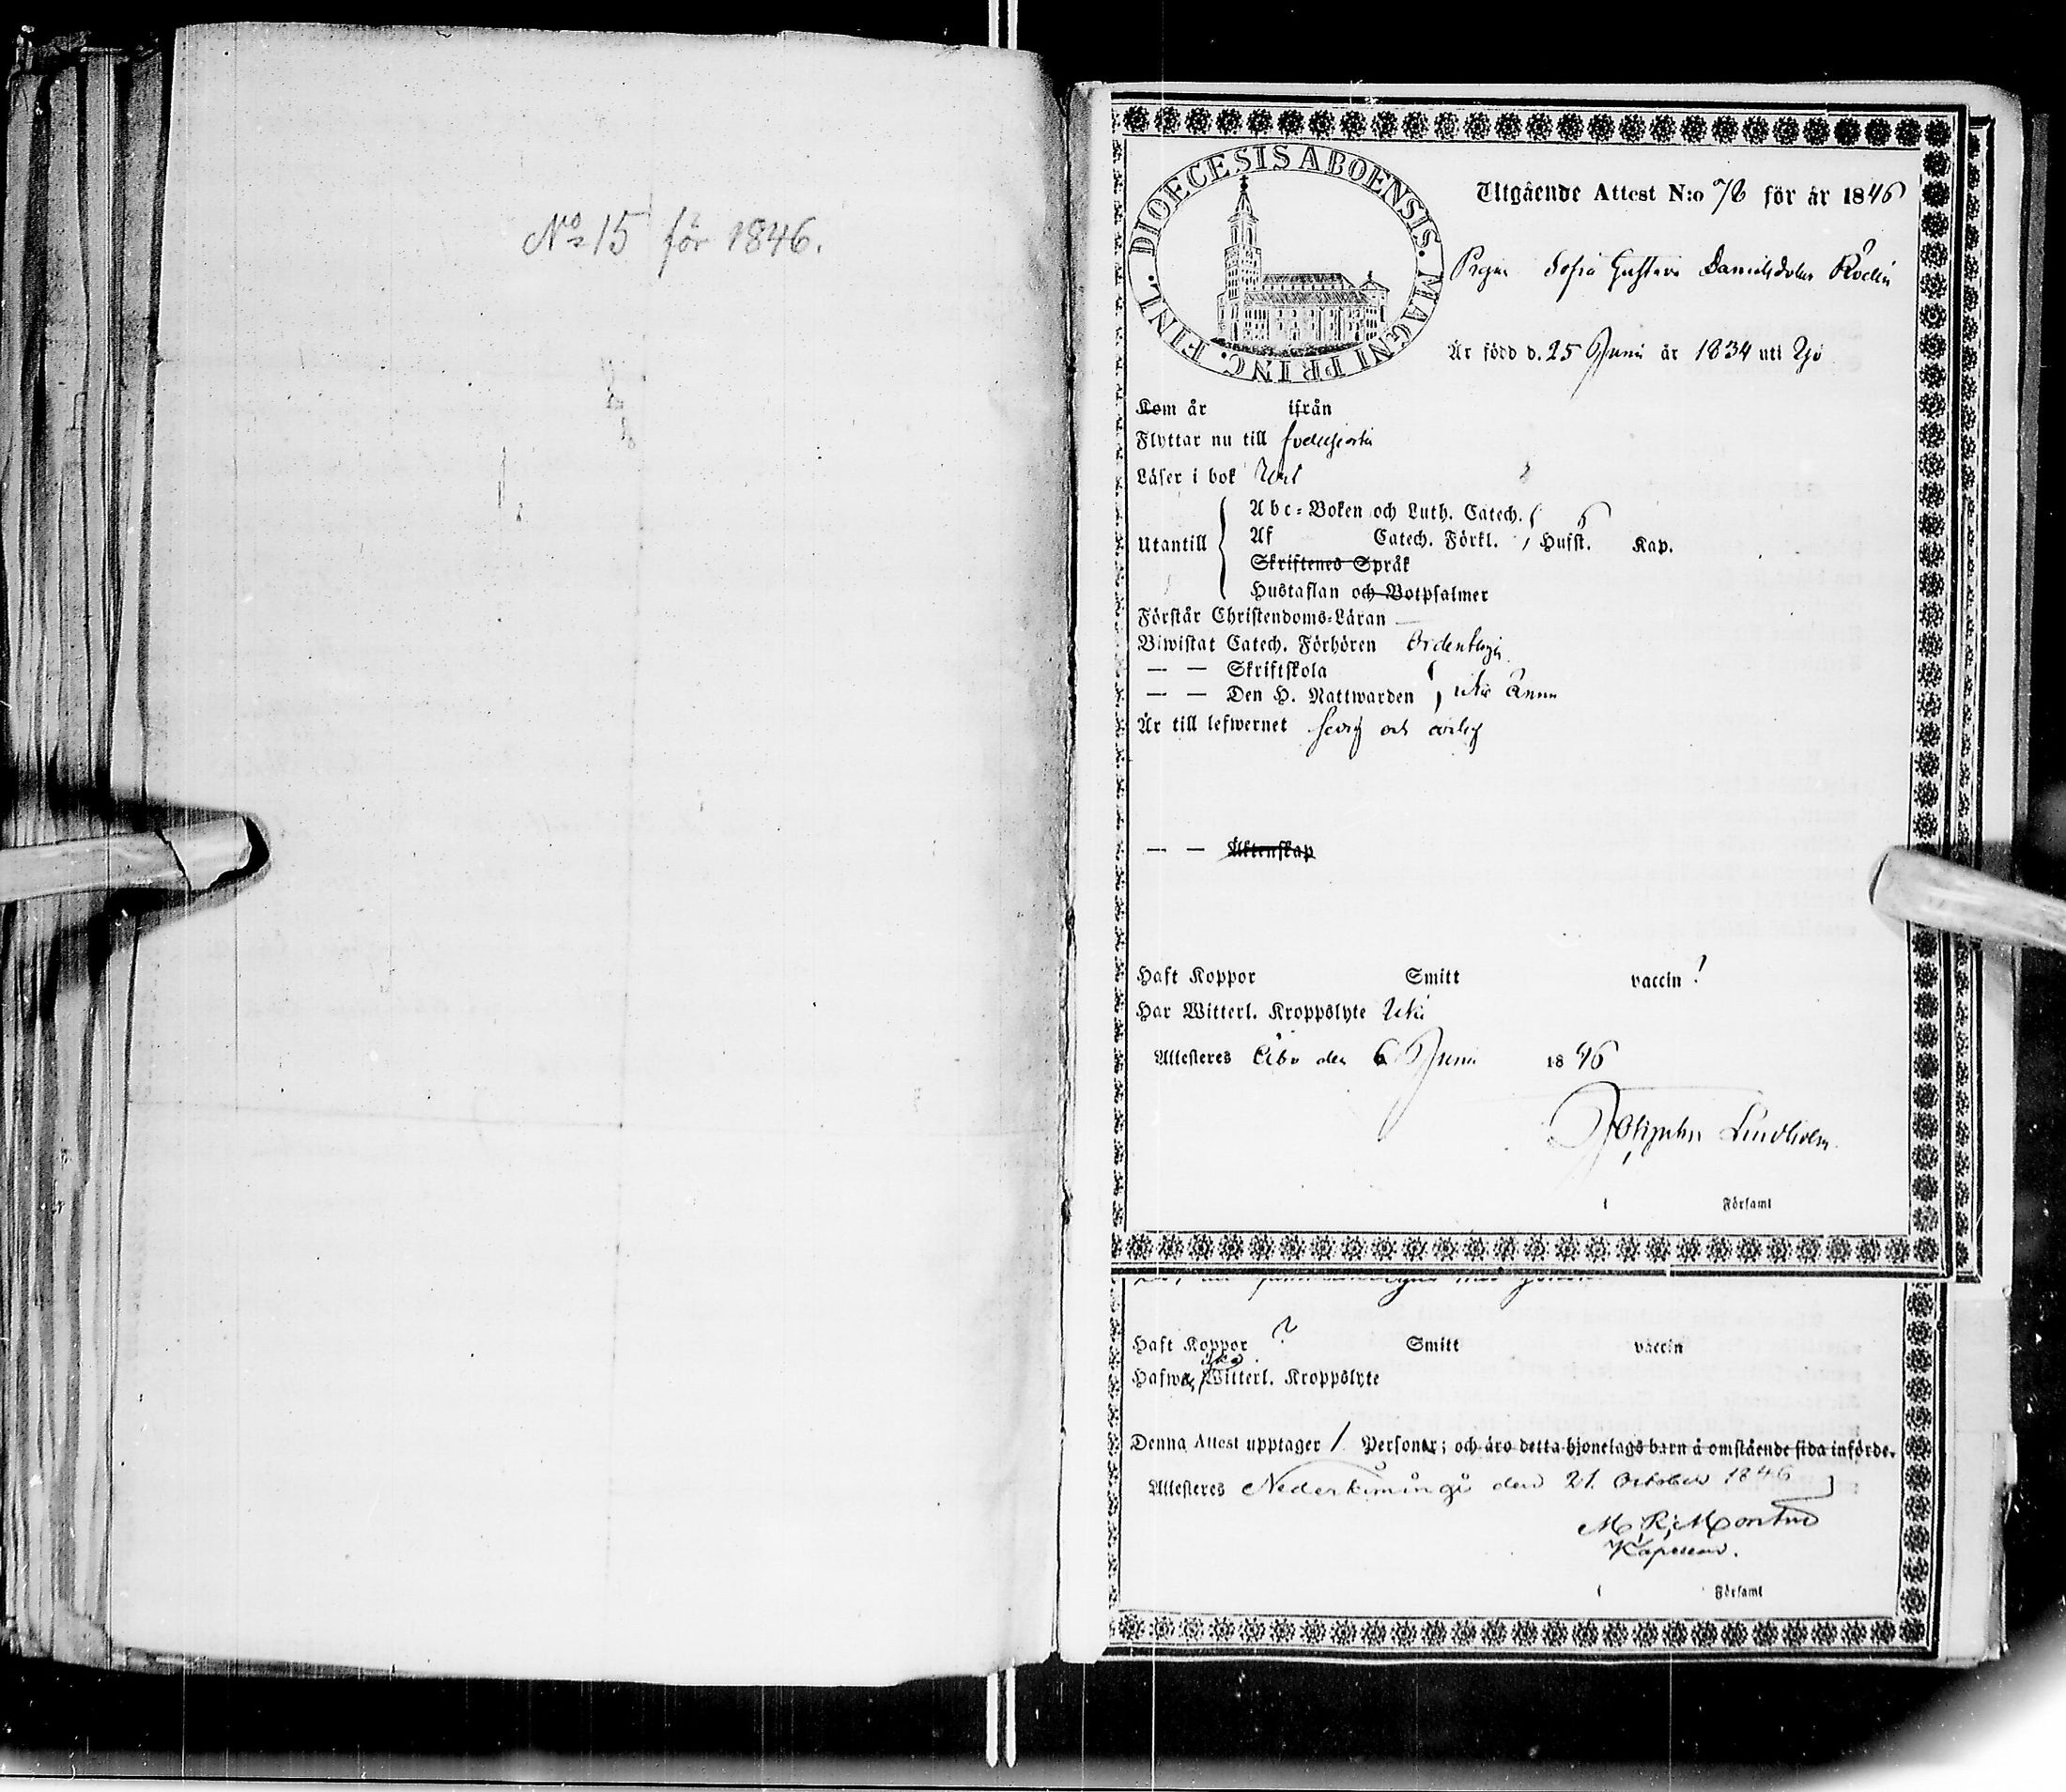 No 15 för 1846.
DIOECESIS ABOENSIS. MAGNI PRINC. FINL.
Utgående Attest N:o 76 för år 1846
Pigan Sofia Gustava Danielsdoter
Är född d. 25 Junii år 1834 uti
Kom år ifrån
Flyttar nu till
Läser i bok
Utantill
Abc-Boken och Luth. Catech.
Af Catech. Förkl. Husst. Kap.
Skriftenes Språk
Hustaflan och Botpsalmer
Förstår Christendoms-Läran —
Biwistat Catech. Förhören Ordentligen
— — Skriftskola
— — Den H. Nattwarden icke ännu
Är till lefwernet sedig och ärlig
— — Äktenskap
Haft Koppor Smitt vaccin !
Har Witterl. Kroppslyte Icke
Attesteres Åbo den 6 Junii 1846
Lindholm
i Församl
Haft Koppor ? Smitt vaccin
Witterl. Kroppslyte
Denna Attest upptager 1 Personer; och äro detta hjonelags barn å omstående sida införde.
Attesteres den 21. October 1846
M. R.
Kapellan.
i Församl